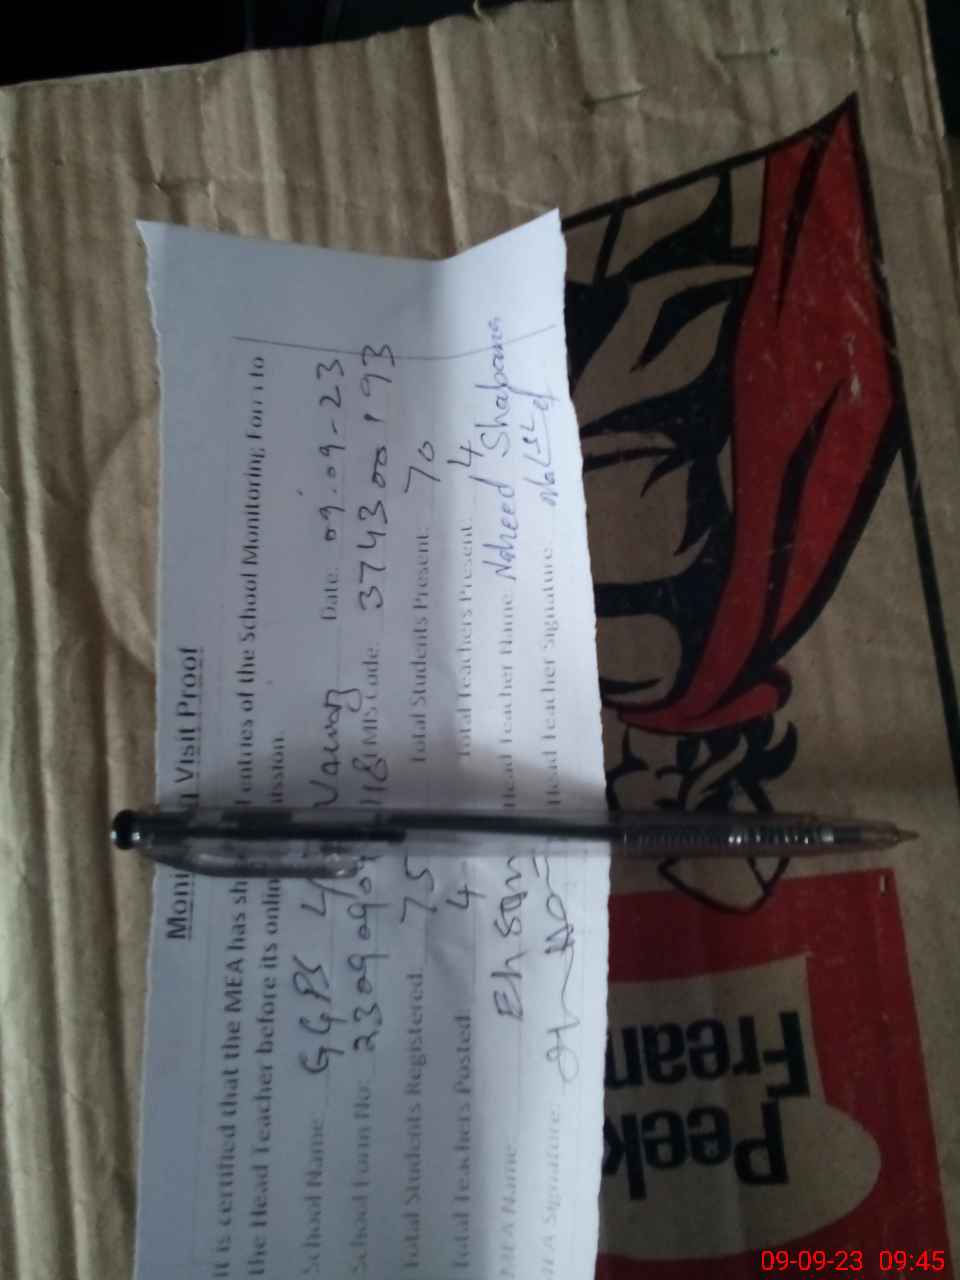 Monitoring Visit Proof
It is certified that the MEA has sh entries of the School Monitoring Form to
the Head Teacher before its onlin ission.
School Name: GGPS Date: 09-09-23
School Form No: EMIS Code: 37430093
Total Students Registered: 75 Total Students Present: 70
Total Teachers Posted: 4 Total Teachers Present: 4
MEA Name: Ehsan Head Teacher Name: Naheed Shabana
MEA Signature: Head Teacher Signature:
Peek
Frean
09-09-23 09:45